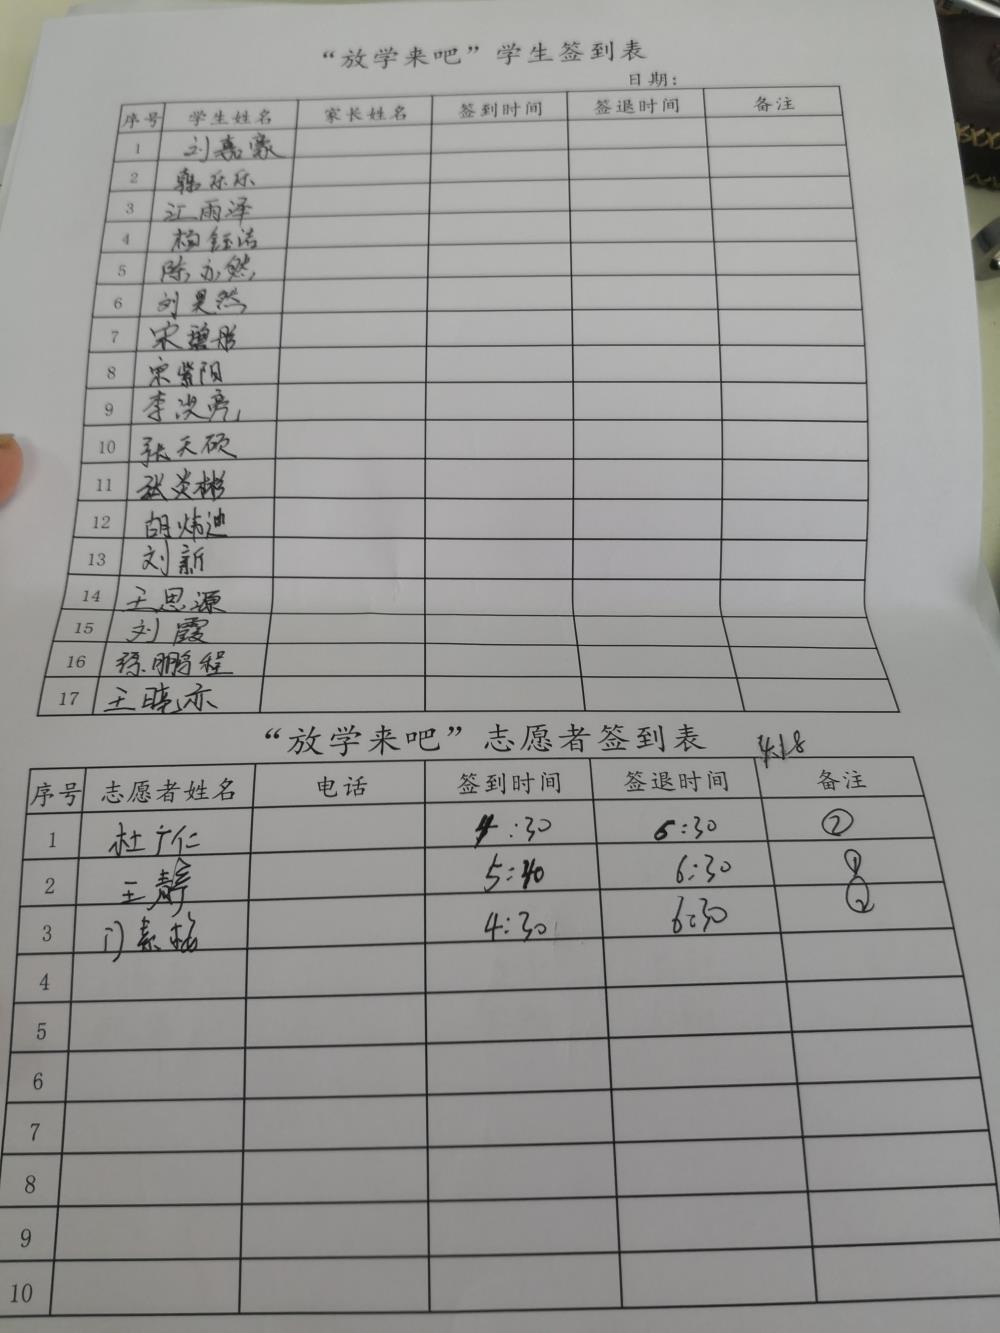 “放学来吧”学生签到表
日期：
序号 学生姓名 家长姓名 签到时间 签退时间 备注
1 刘嘉豪
2 韩乐乐
3 江雨泽
4 柏钰洁
5 陈亦然
6 刘昊然
7 宋碧彤
8 宋紫阳
9 李浚亮
10 张天硕
11 张炎彬
12 胡炜迪
13 刘新
14 王思源
15 刘霞
16 孙鹏程
17 王晓亦
“放学来吧”志愿者签到表
4.18
序号 志愿者姓名 电话 签到时间 签退时间 备注
1 杜广仁 4:30 6:30 ②
2 王静 5:40 6:30 ①
3 门素梅 4:30 6:30 ②
4
5
6
7
8
9
10